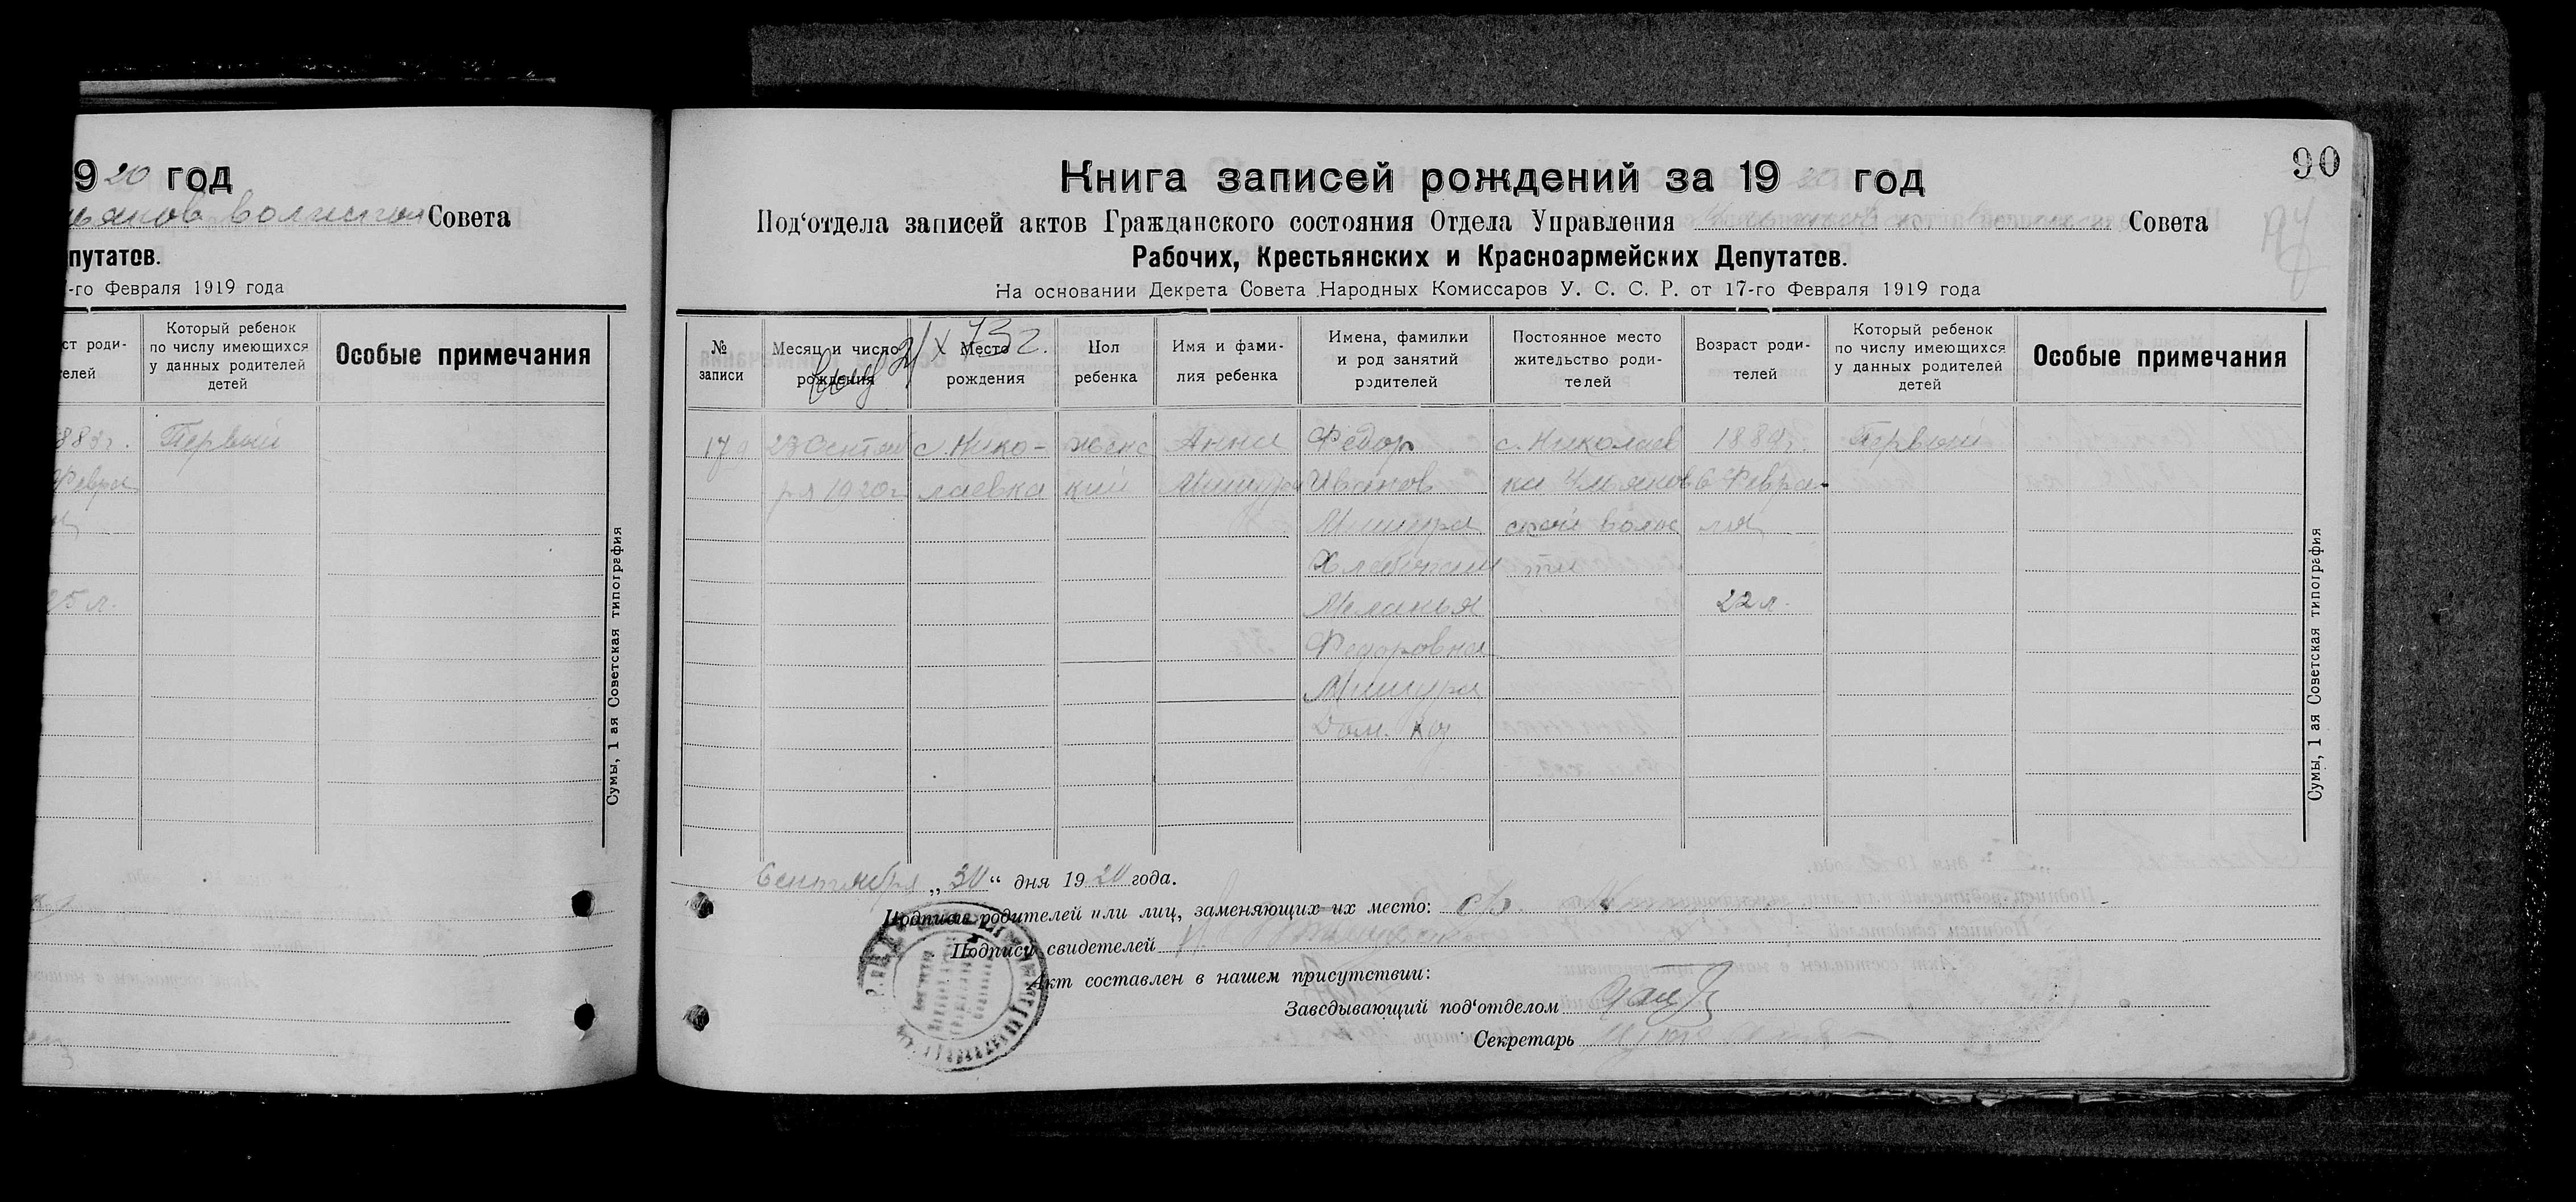 9 20 год
Совета
путатов.
-го Февраля 1919 года
ст роди-
телей
Который ребенок
по числу имеющихся
у данных родителей
детей
Особые примечания
Первый
Февра
25 л.
Сумы, 1 ая Советская типография
90
Книга записей рождений за 19 20 год
Под‘отдела записей актов Гражданского состояния Отдела Управления Совета
Рабочих, Крестьянских и Красноармейских Депутатов.
На основании Декрета Совета Народных Комиссаров У. С. С. Р. от 17-го Февраля 1919 года
№
записи
Месяц и число
рождения
Место
рождения
Пол
ребенка
Имя и фами-
лия ребенка
Имена, фамилии
и род занятий
родителей
Постоянное место
жительство роди-
телей
Возраст роди-
телей
Который ребенок
по числу имеющихся
у данных родителей
детей
Особые примечания
X 73 г.
23 Сентяб
ря 1920 г
с. Нико-
лаевка
женс
кий
Анна
Мишура
Федор
Иванов
Мишура
Хлебопаш
Меланья
Федоровна
Мишура
Дом. хоз
с. Николаев
ка Ульянов
ской волос
ти
6 Февра-
ля
22 л.
Первый
Сумы, 1 ая Советская типография
Сентября „30“ дня 1920 года.
Подписи родителей или лиц, заменяющих их место:
Подписи свидетелей
Акт составлен в нашем присутствии:
Заведывающий под‘отделом
Секретарь